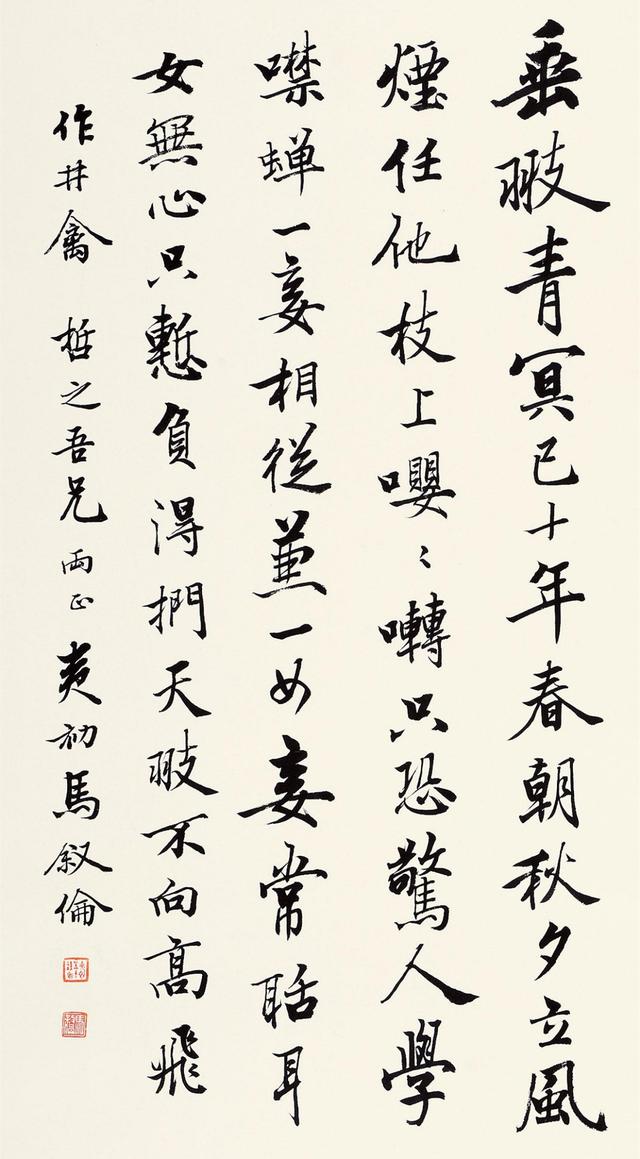 垂翅青冥已十年春朝秋夕立風
煙任他枝上嚶〻囀只恐驚人學
噤蟬一妾相從兼一女妾常聒耳
女無心只慙負得捫天翅不向高飛
作井禽 哲之吾兄兩正 夷初馬叙倫